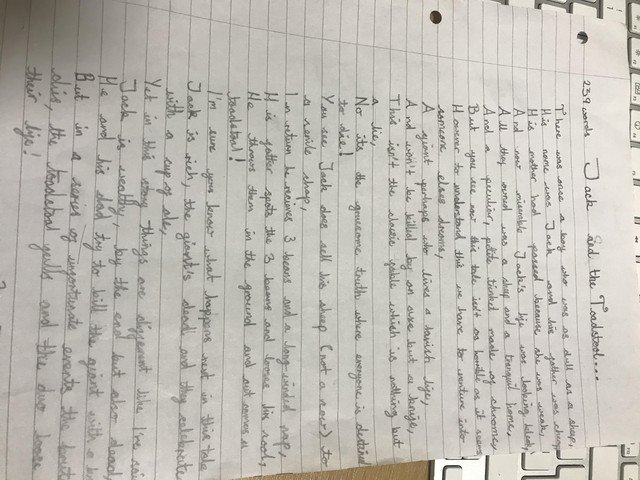 239 words Jack and the Toadstool....
There was once a boy who was as dull as a sheep,
His name was Jack and his father was cheap,
His mother had passed because she was weak,
And now miserable Jack's life was looking bleak,
All they owned was a sheep and a tranquil home,
And a peculiar, petite trinket made of chrome,
But you see not this tale isn't as humble as it seems
However to understand this we have to venture into
someone elses dreams,
A giant perhaps who lives a lavish life,
And won't be killed by an axe but a knife,
This isn't the classic fable which is nothing but
a lie,
No its the gruesome truth where everyone is destined
to die!
You see Jack does sell his sheep (not a cow) to
a senile chap,
In return he receives 3 beans and a long-winded nap,
His father spots the 3 beans and looses his cool,
He throws them in the ground and out comes a
toadstool!
I'm sure you know what happens next in this tale
Jack is rich, the giant's dead and they celebrate
with a cup of ale,
Yet in this story things are different like I've said
Jack is wealthy, by the end but also dead,
He and his dad try to kill the giant with a
But in a series of unfortunate events the
dies, the toadstool falls and the duo loose
their life!